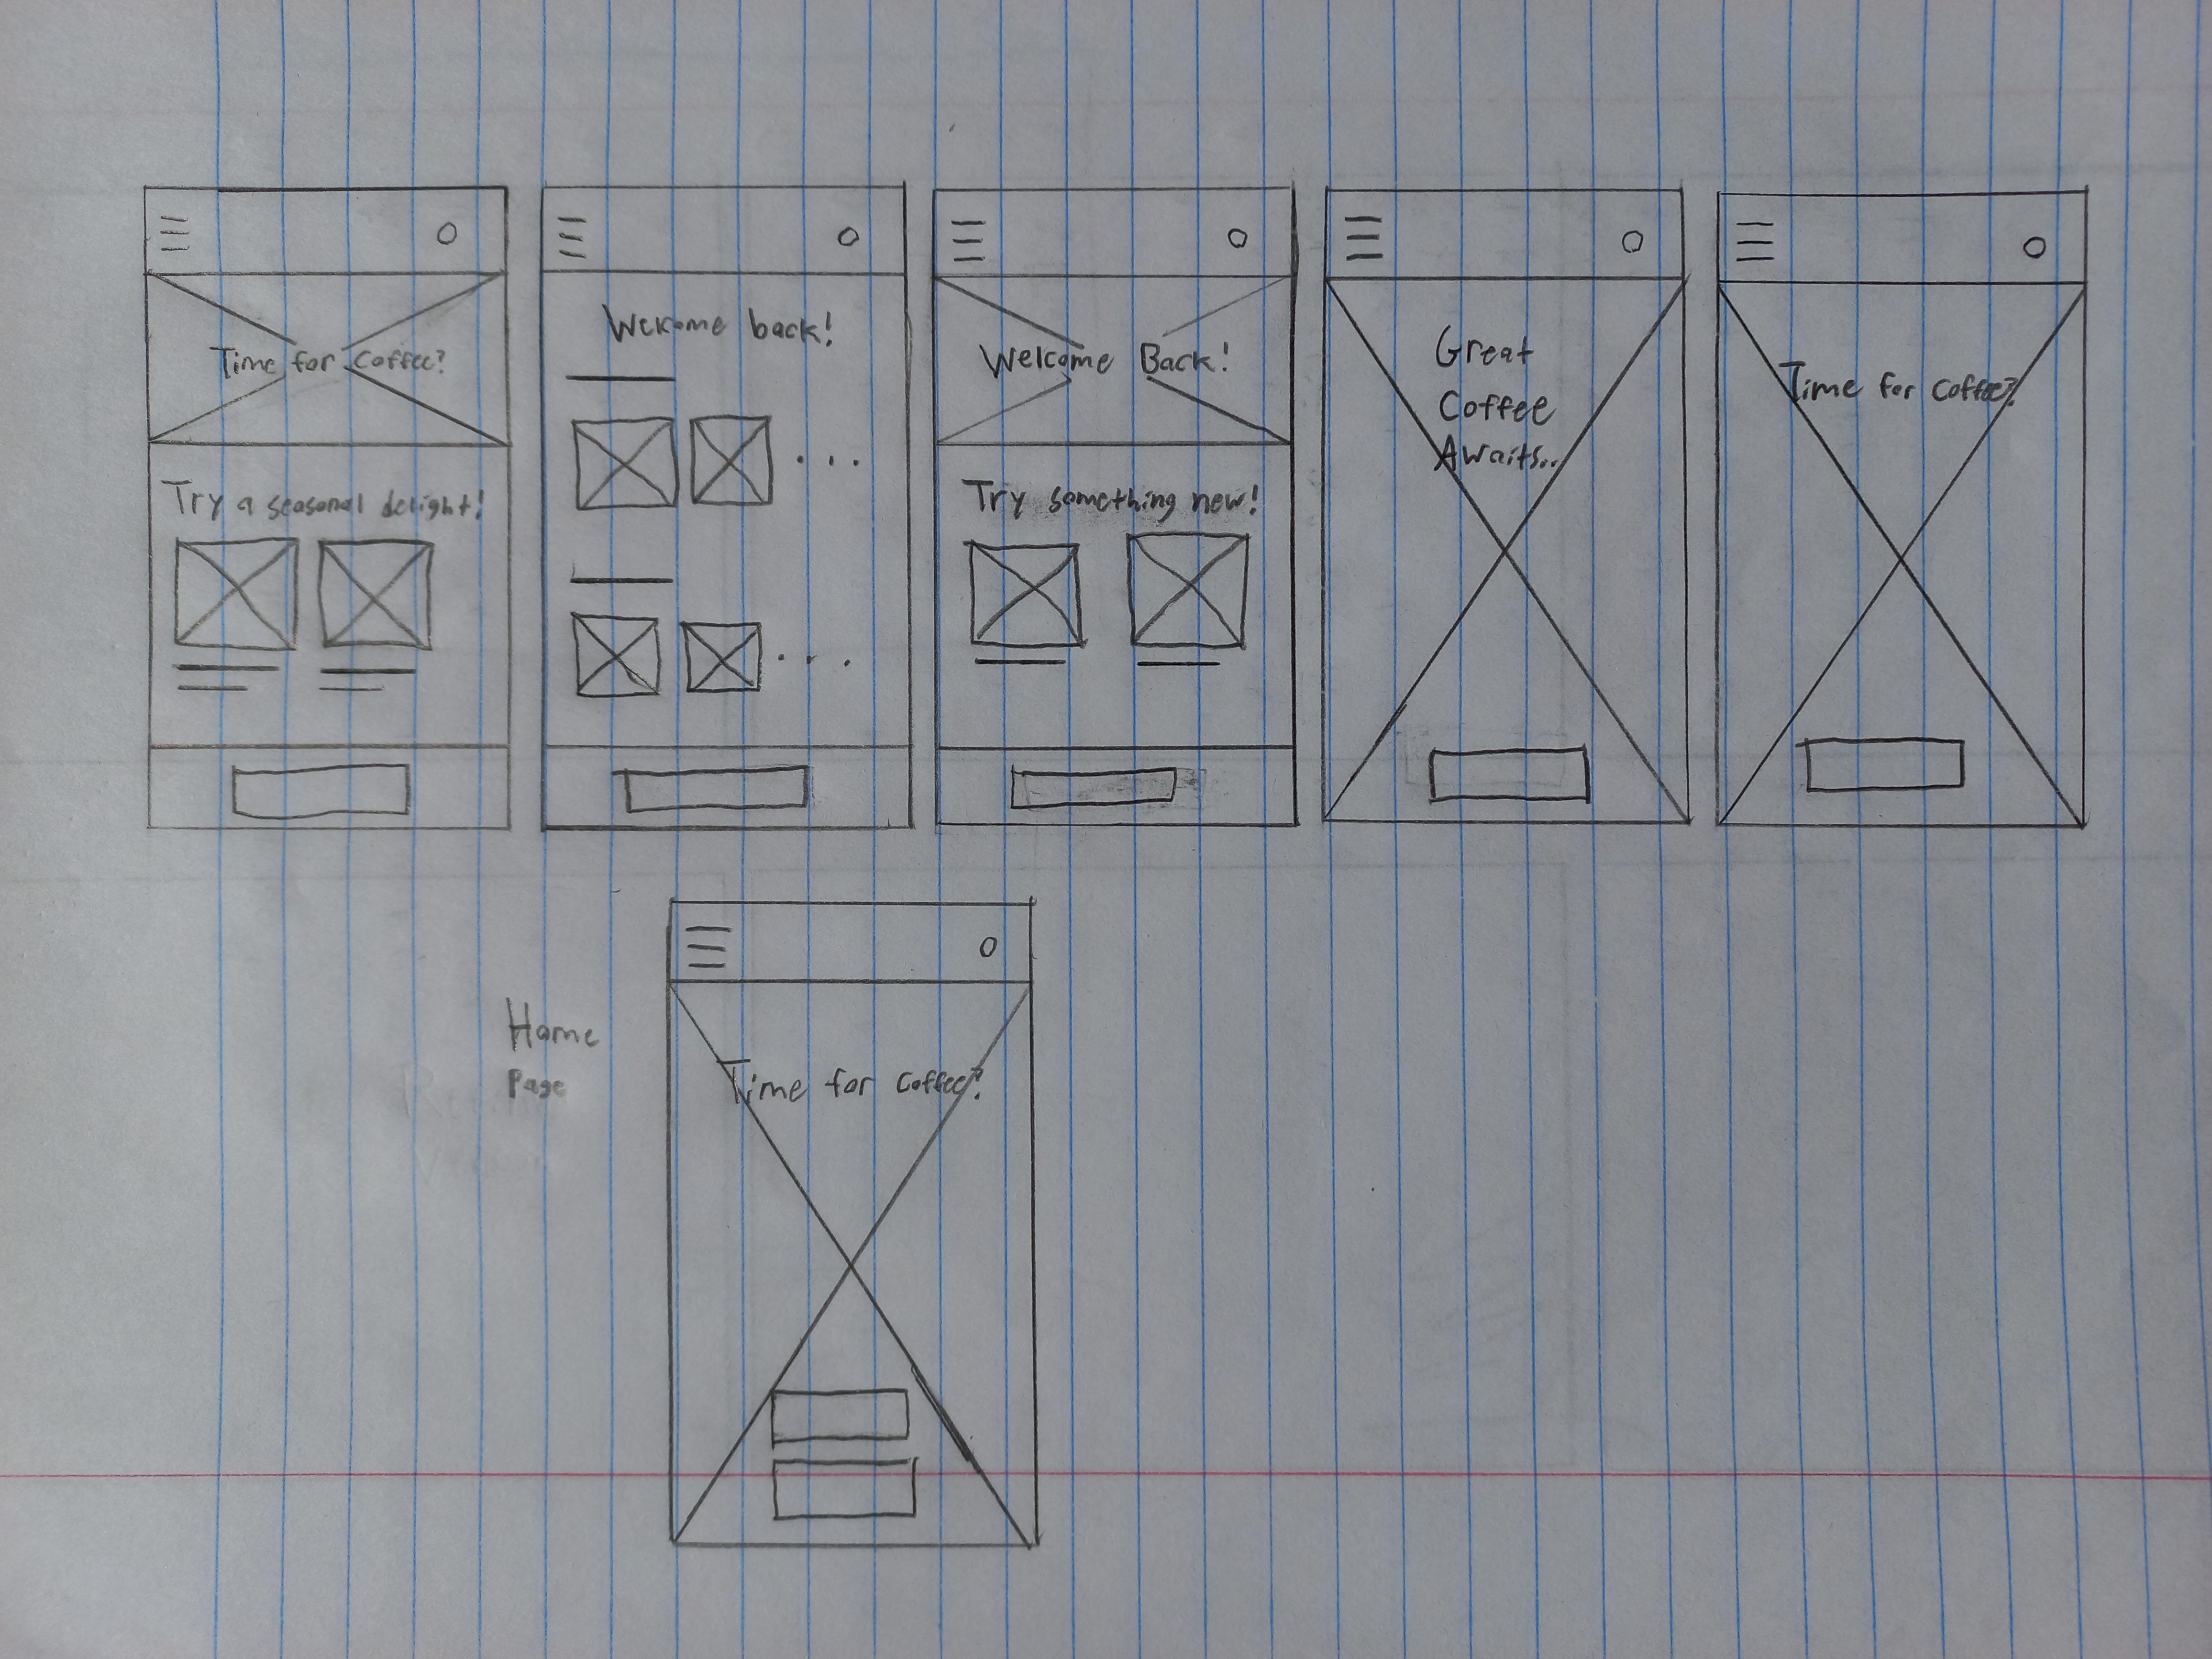 Time for Coffee?
Try a seasonal delight!
Welcome back!
Welcome Back!
Try something new!
Great
Coffee
Awaits...
Time for Coffee?
Home
Page
Time for Coffee?